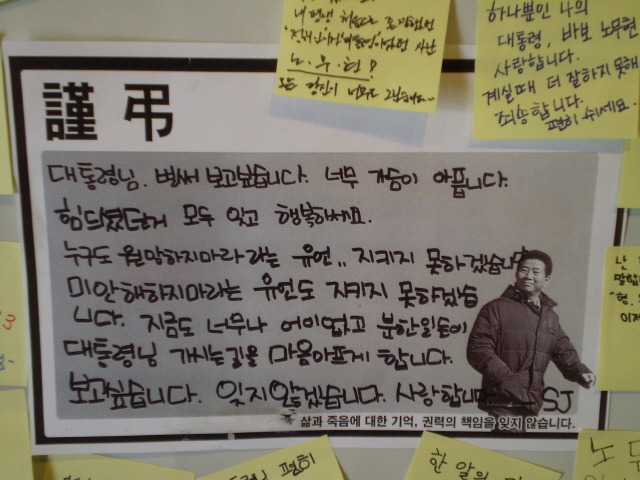 내 평생 처음으로
노.무.현!
하나뿐인 나의
대통령, 바보 노무현
사랑합니다.
계실때 더 잘하지 못해
죄송합니다.
편히 쉬세요.
謹弔
대통령님. 벌써 보고싶습니다. 너무 가슴이 아픕니다.
힘드셨던거 모두 잊고 행복하세요.
누구도 원망하지마라 라는 유언.. 지키지 못하겠습니다
미안해하지마라는 유언도 지키지 못하겠습
니다. 지금도 너무나 어이없고 분한일들이
대통령님 가시는길을 마음아프게 합니다.
보고싶습니다. 잊지않겠습니다. 사랑합니다. SJ
삶과 죽음에 대한 기억, 권력의 책임을 잊지 않습니다.
난
이제
편히
한
노무